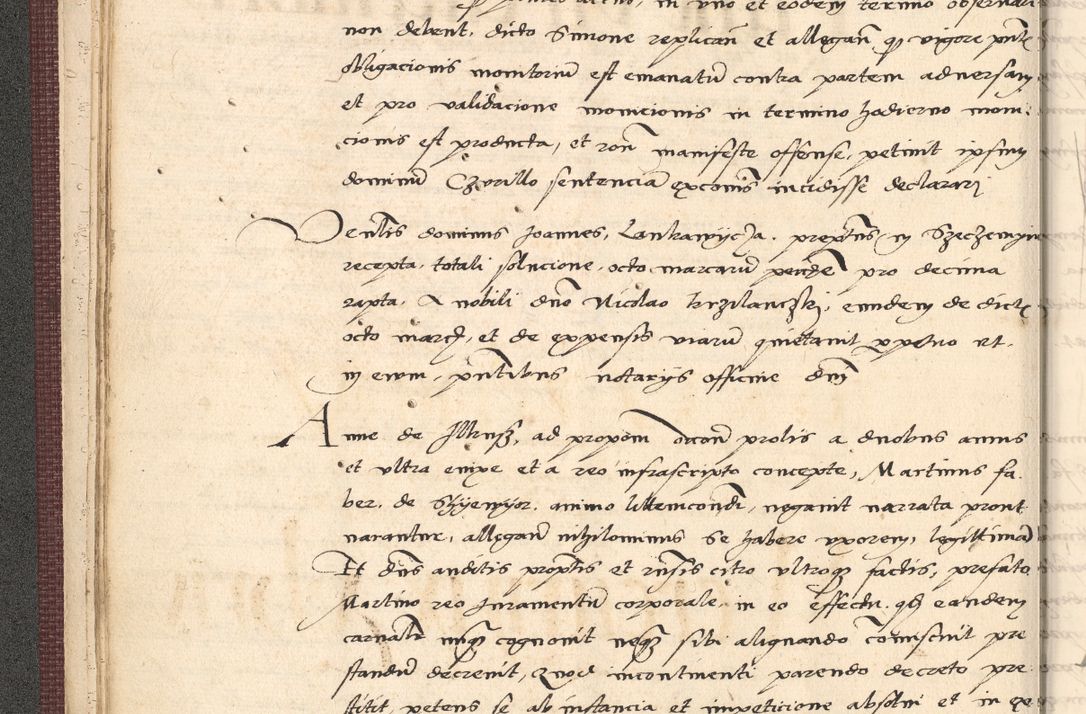 in uno et eodem termino observari
non debent, dicto Simone replicañ et allegañ qȝ vigore pñti
obligacionis monitoriũ est emanatũ contra partem adversam
et pro validacione monicionis in termino hodierno moni:
cionis est producta, et roñ manifeste offense, petivit ipsum
dominũ Czyrillo sentenciã excoṁis incidisse declarari
Veñlis dominus Joannes, Lankawycza. prepẽtus in Szeczemyn
recepta, totali solucione, octo marcarũ pro decima
rapta. A nobili dño Nicolao eundem de dicti
octo marcȝ, et de expensis viarũ quietavit et.
in evum, pñtibus notariis officiiie dñi
Anne de ad propoñ prolis a duobus annis
et ultra enixe et a reo infrascripto concepte, Martinus fa
ber, de animo litemcondi, negavit narrata prout
narantur, allegavit nihilominus se habere uxorem, legittimam
Et dñs auditis propoñs et rñsis citro ultroqȝ factis, prefato
Martino reo Juramentũ corporale in eo effectu. qȝ eandem
carnalr nunqȝ cognovit neqȝ sibi aliquando cõmiscuit pre
standũ decrevit, Quod incontinenti parendo decreto pre
stitit, petens se ab instancia et impeticione absolvi et in ex